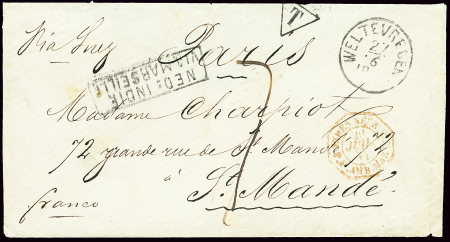 Via Suez
Paris
T
WELTEVREDEN
27
6
NED. INDIE
VIA MARSEILLE
Madame Charpiot
72 grande rue de St Mandé, 72
7
à St Mandé
franco